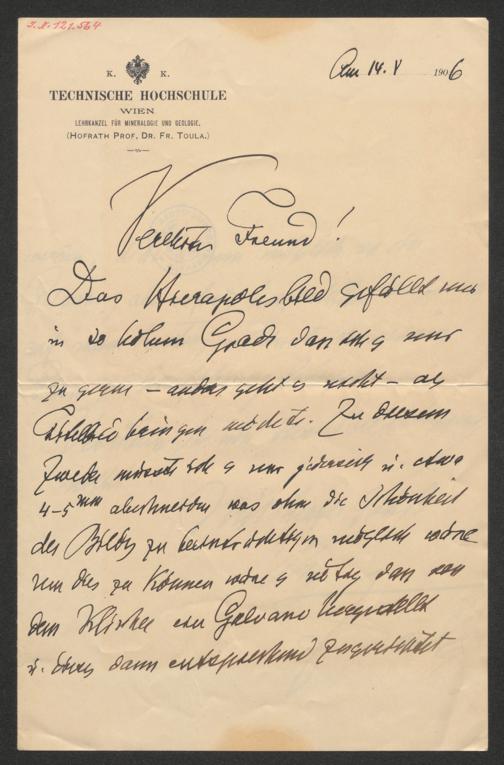 J.N. 121.564
K. K.
TECHNISCHE HOCHSCHULE
WIEN
LEHRKANZEL FÜR MINERALOGIE UND GEOLOGIE.
(HOFRATH PROF. DR. FR. TOULA.)
Am 14. V 1906
Verehrter Freund!
Das Hierapolisbild gefällt mir
in so hohem Grade dass ich es nur
zu gerne – anders geht es nicht – als
Titelbild bringen möchte. Zu diesem
Zwecke müsste ich es nur jederseits u. etwa
4–5 mm abschneiden was ohne die Schönheit
des Bildes zu beeinträchtigen möglich wäre
um dies zu können wäre es nötig dass von
dem Klischee ein Galvano hergestellt
u. dann entsprechend zugerichtet